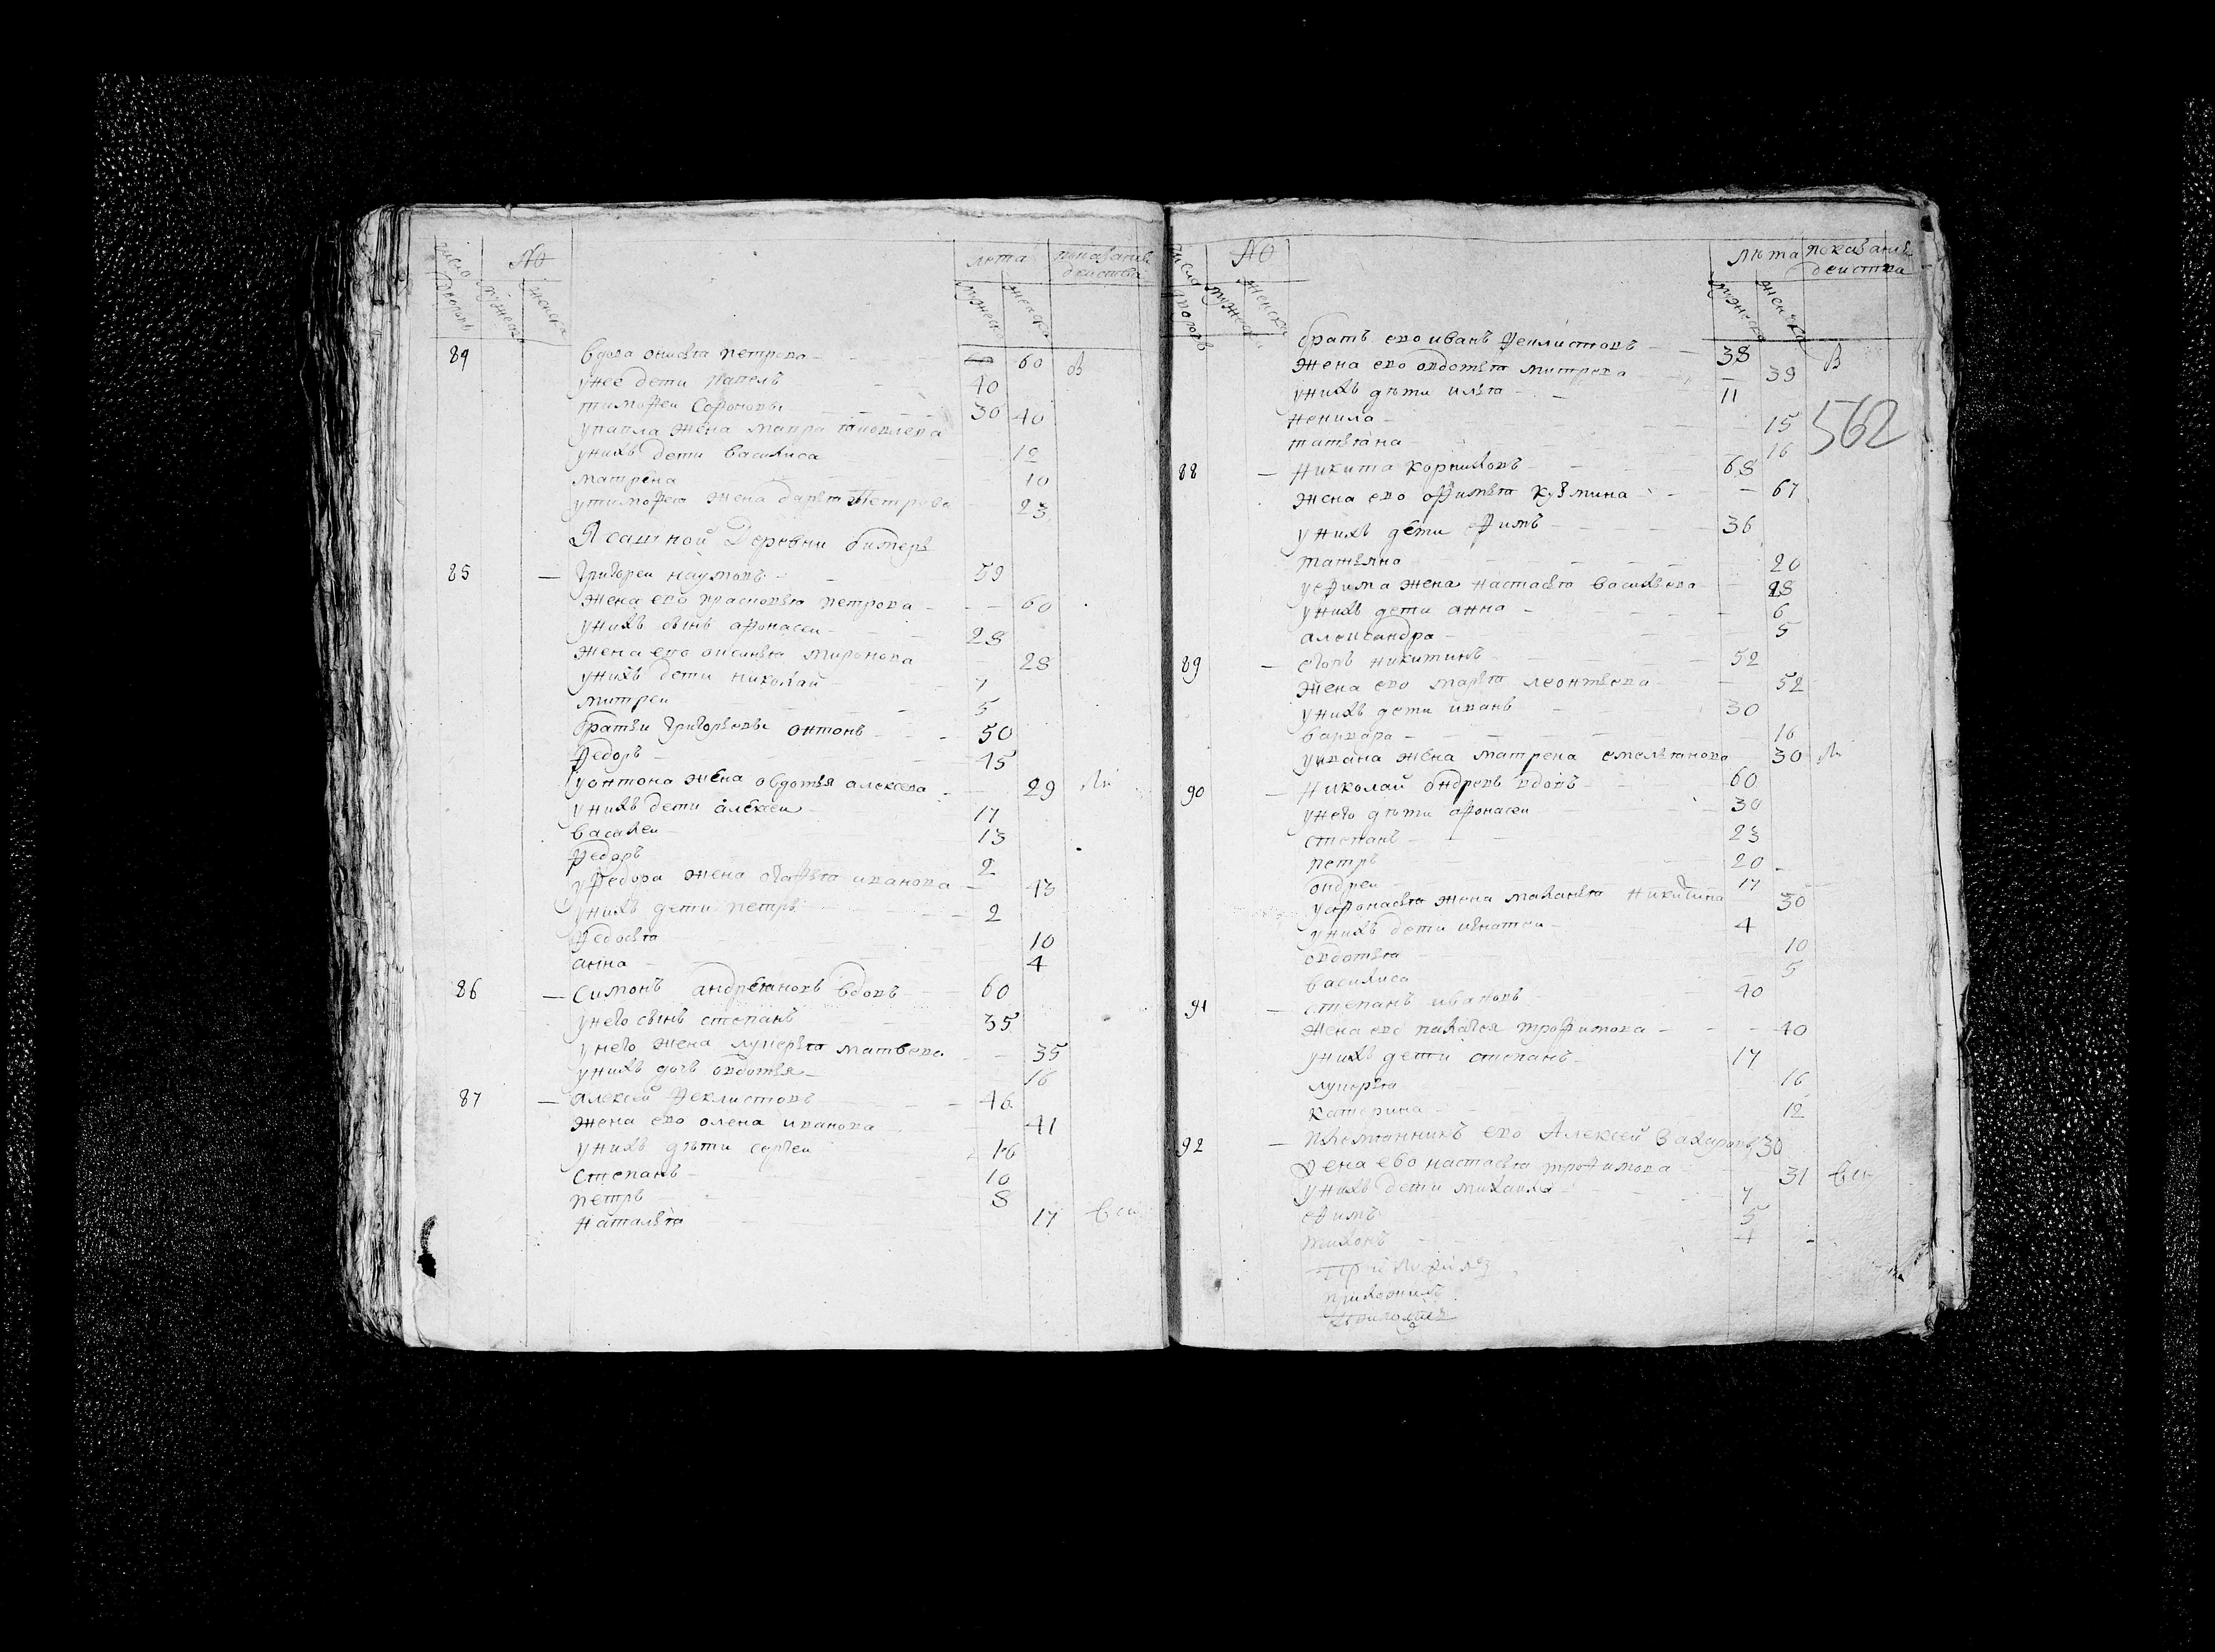 число дворовъ
№
мужеска
женска
лѣта
мужеска
женска
показание
действа
84
вдова онисья петрова 60 В
у нее дети павелъ 40
тимофеи софоновы 30 40
у павла жена мавра яковлева
у нихъ дети василиса 12
матрена 10
у тимофея жена дарья петрова 23
Ясашной Деревни бимерь
85 Григореи наумовъ 59
жена ево прасковья петрова 60
у нихъ сынъ афонасеи 28
жена ево оксинья миронова 28
у нихъ дети николаи 7
митреи 5
братьи григорьевы онтонъ 50
федоръ 45
у онтона жена овдотья алексеева 29
у нихъ дети алексеи 17
василеи 13
федоръ 2
у федора жена агафья иванова 43
у нихъ дети петръ 2
федосья 10
анна 4
86 Симонъ андреяновъ вдовъ 60
у него сынъ степанъ 35
у него жена лукерья матвеева 35
у нихъ дочь овдотья 16
87 алексеи феклистовъ 46
жена ево олена иванова 41
у нихъ дѣти сергеи 16
степанъ 10
петръ 8
наталья 17
число дворовъ
№
мужеска
женска
лѣта
мужеска
женска
показание
действа
братъ ево иванъ феклистовъ 38 В
жена ево овдотья митрева 39
у нихъ дѣти илья 11
ненила 15
татьяна 16
562
88 никита корниловъ 68
жена ево офимья кузмина 67
у нихъ дети ефимъ 36
татьяна 20
у ефима жена настасья васильева 28
у нихъ дети анна 6
александра 5
89 егоръ никитинъ 52
жена ево марья леонтьева 52
у нихъ дети иванъ 30
варвара 16
у ивана жена матрена емельянова 30
90 николай ондревъ вдовъ 60
у него дѣти афонасеи 30
степанъ 23
петръ 20
ондреи 17
у афонасья жена маланья никитина 30
у нихъ дети игнатеи 4
овдотья 10
василиса 5
91 степанъ ивановъ 40
жена ево палагея трофимова 40
у нихъ дети степанъ 17
лукерья 16
катерина 12
92 племянникъ ево Алексей Захаровъ 30
жена ево настасья трофимова 31
у нихъ дети михаила 7
ефимъ 5
тихонъ 4